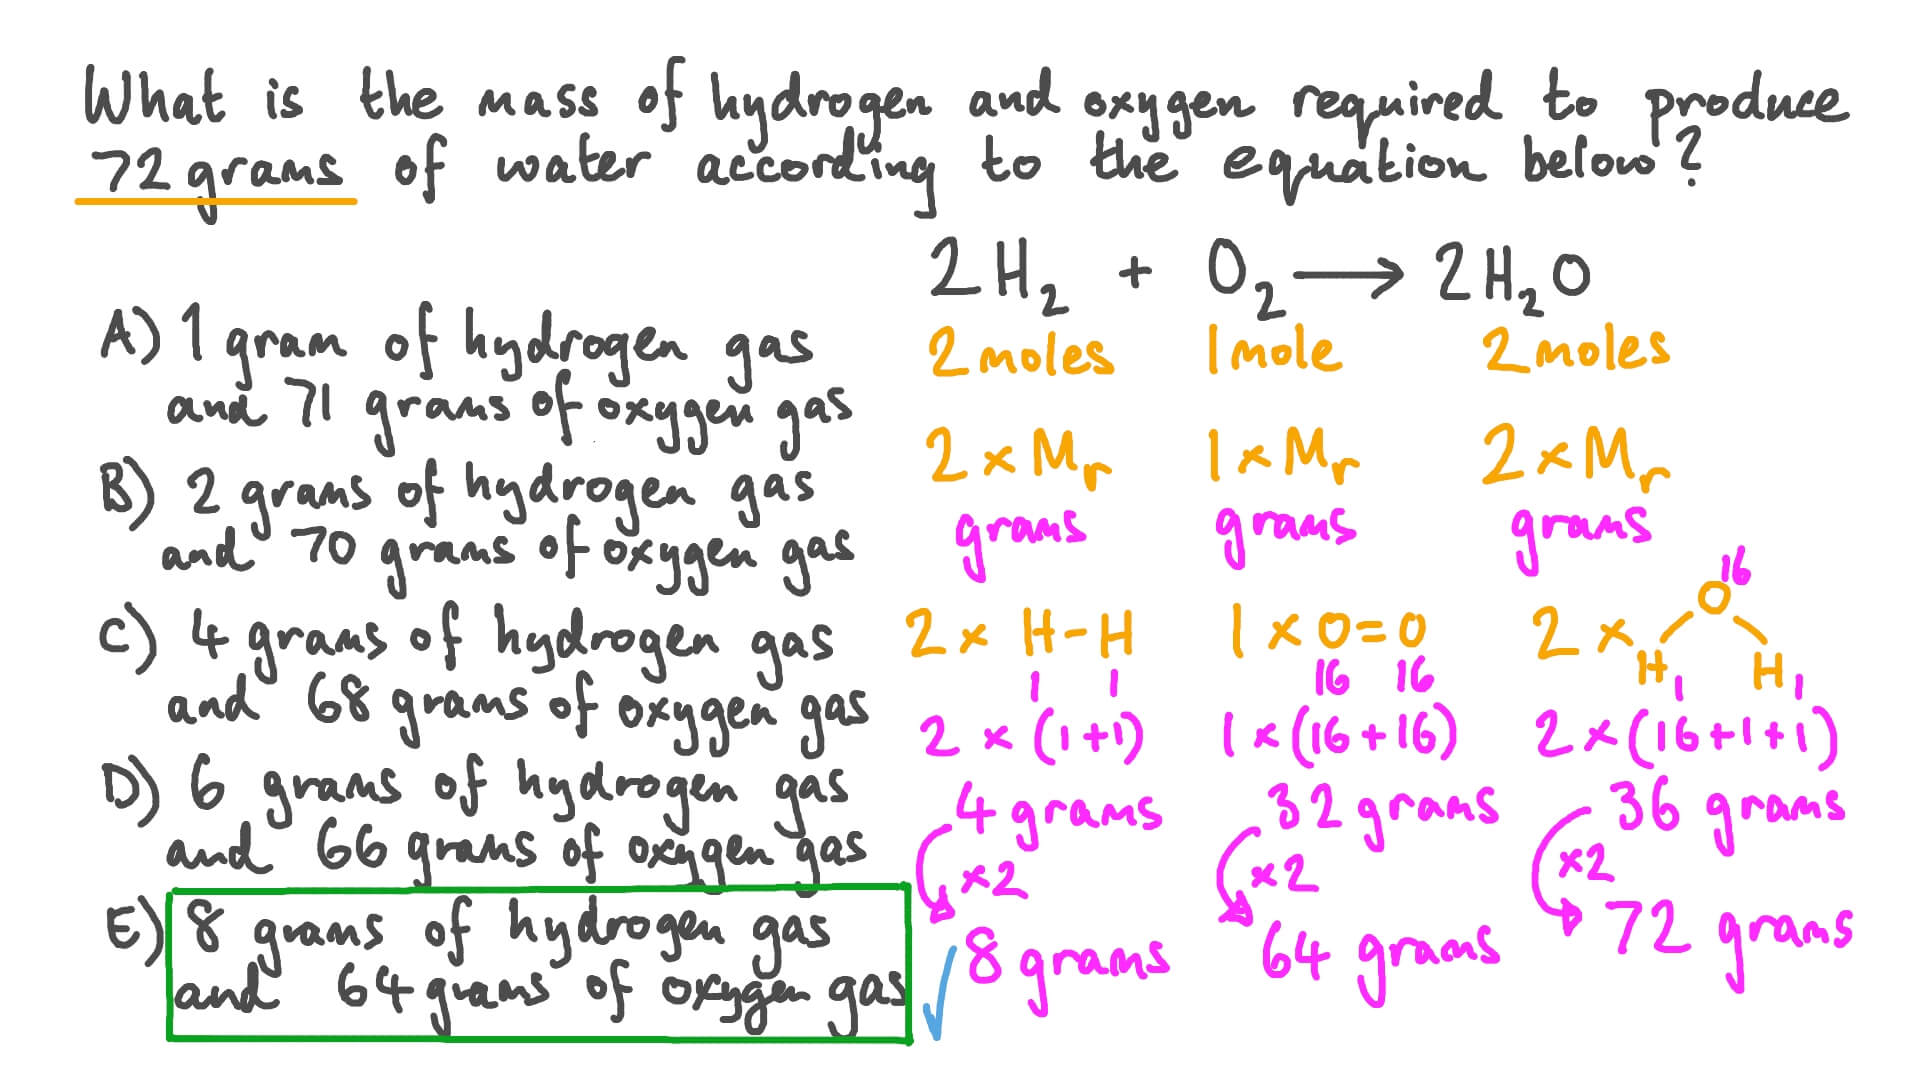 What is the mass of hydrogen and oxygen required to produce
72 grams of water according to the equation below?
2H₂ + O₂ → 2H₂O
A) 1 gram of hydrogen gas
and 71 grams of oxygen gas
B) 2 grams of hydrogen gas
and 70 grams of oxygen gas
C) 4 grams of hydrogen gas
and 68 grams of oxygen gas
D) 6 grams of hydrogen gas
and 66 grams of oxygen gas
E) 8 grams of hydrogen gas
and 64 grams of oxygen gas
2 moles 1 mole 2 moles
2 × Mr 1 × Mr 2 × Mr
grams grams grams
16
O
2 × H-H 1 × O=O 2 ×
H H
1 1 16 16 1 1
2 × (1+1) 1 × (16+16) 2 × (16+1+1)
4 grams 32 grams 36 grams
×2 ×2 ×2
8 grams 64 grams 72 grams